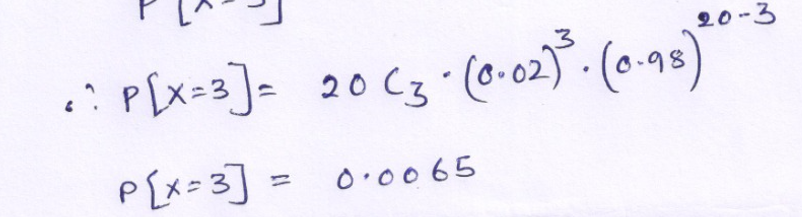 ∴ P[X=3] = 20 C₃ · (0.02)³ · (0.98)²⁰⁻³
P[X=3] = 0.0065